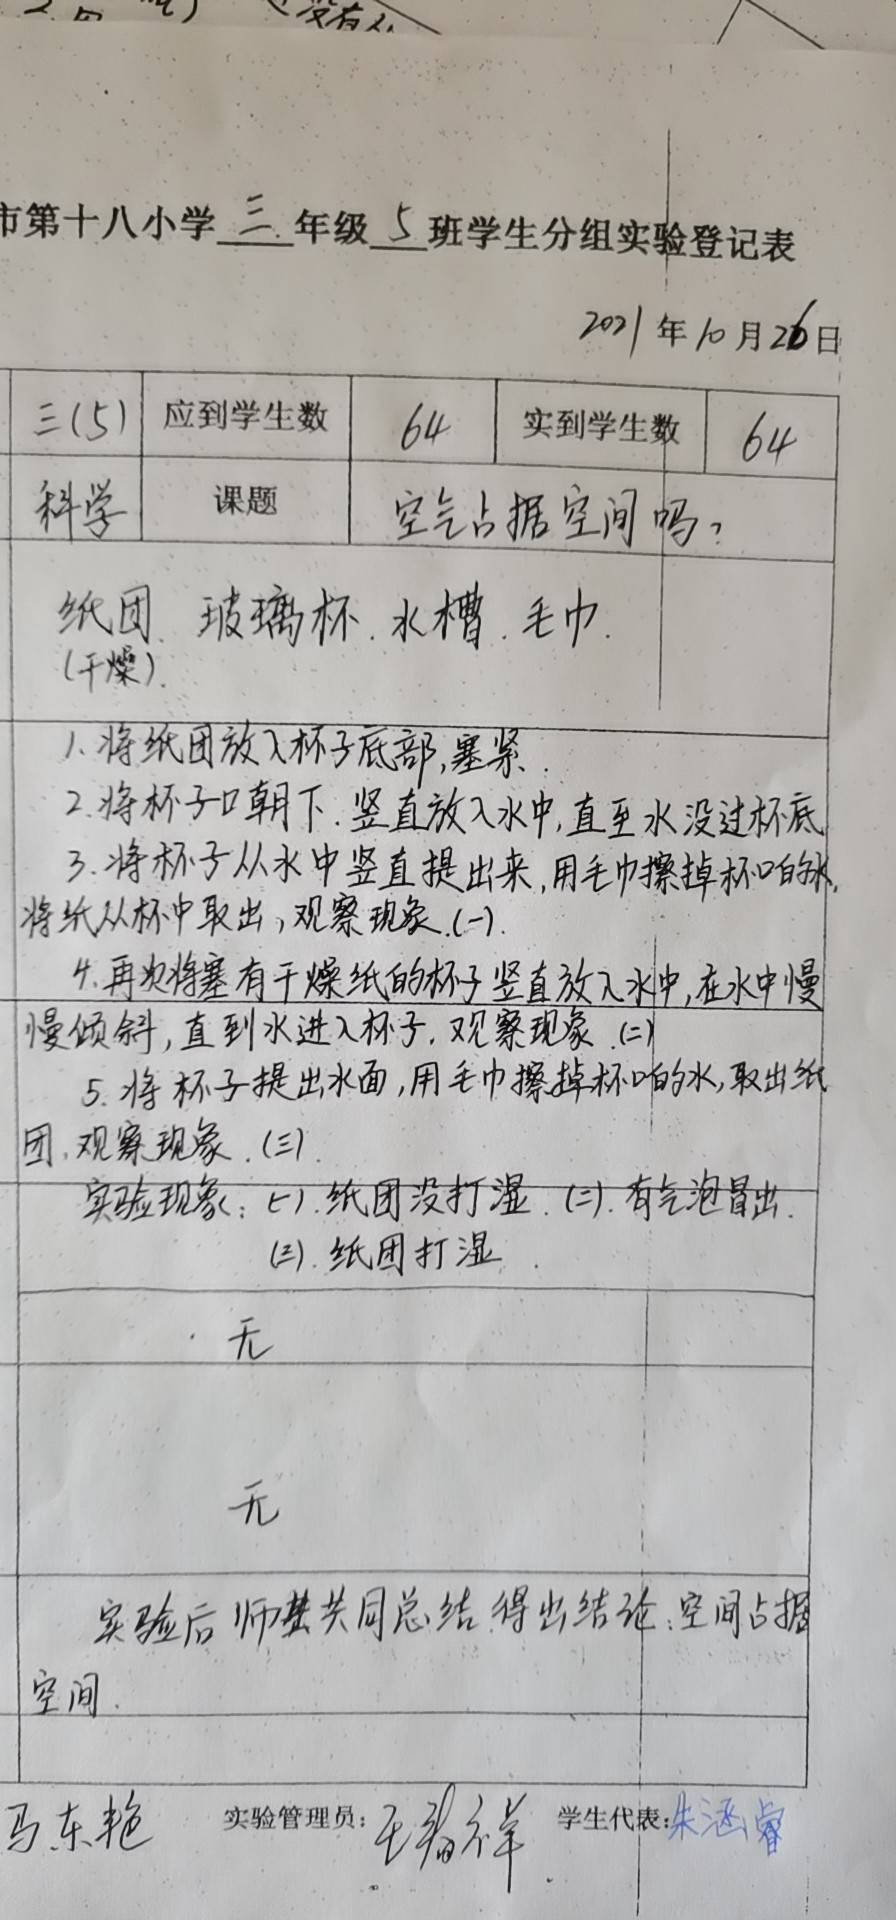 没有人
市第十八小学三年级5班学生分组实验登记表
2021年10月26日
三(5) 应到学生数 64 实到学生数 64
科学 课题 空气占据空间吗?
纸团、玻璃杯.水槽.毛巾.
(干燥).
1.将纸团放入杯子底部,塞紧.
2.将杯子口朝下.竖直放入水中,直至水没过杯底
3.将杯子从水中竖直提出来,用毛巾擦掉杯口的水,
将纸从杯中取出,观察现象.(一).
4.再次将塞有干燥纸的杯子竖直放入水中,在水中慢
慢倾斜,直到水进入杯子.观察现象.(二)
5.将杯子提出水面,用毛巾擦掉杯口的水,取出纸
团.观察现象.(三).
实验现象:(一).纸团没打湿.(二).有气泡冒出.
(三).纸团打湿.
无
无
实验后师生共同总结.得出结论:空间占据
空间.
马东艳 实验管理员: 学生代表:朱涵睿